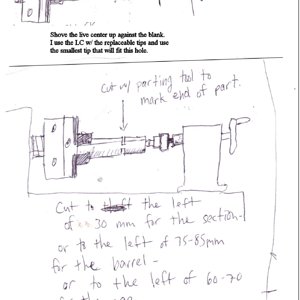 Shove the live center up against the blank.
I use the LC w/ the replaceable tips and use
the smallest tip that will fit this hole.
cut w/ parting tool to
mark end of part.
Cut to the left
of 30 mm for the section-
or to the left of 75-85mm
for the barrel -
or to the left of 60-70